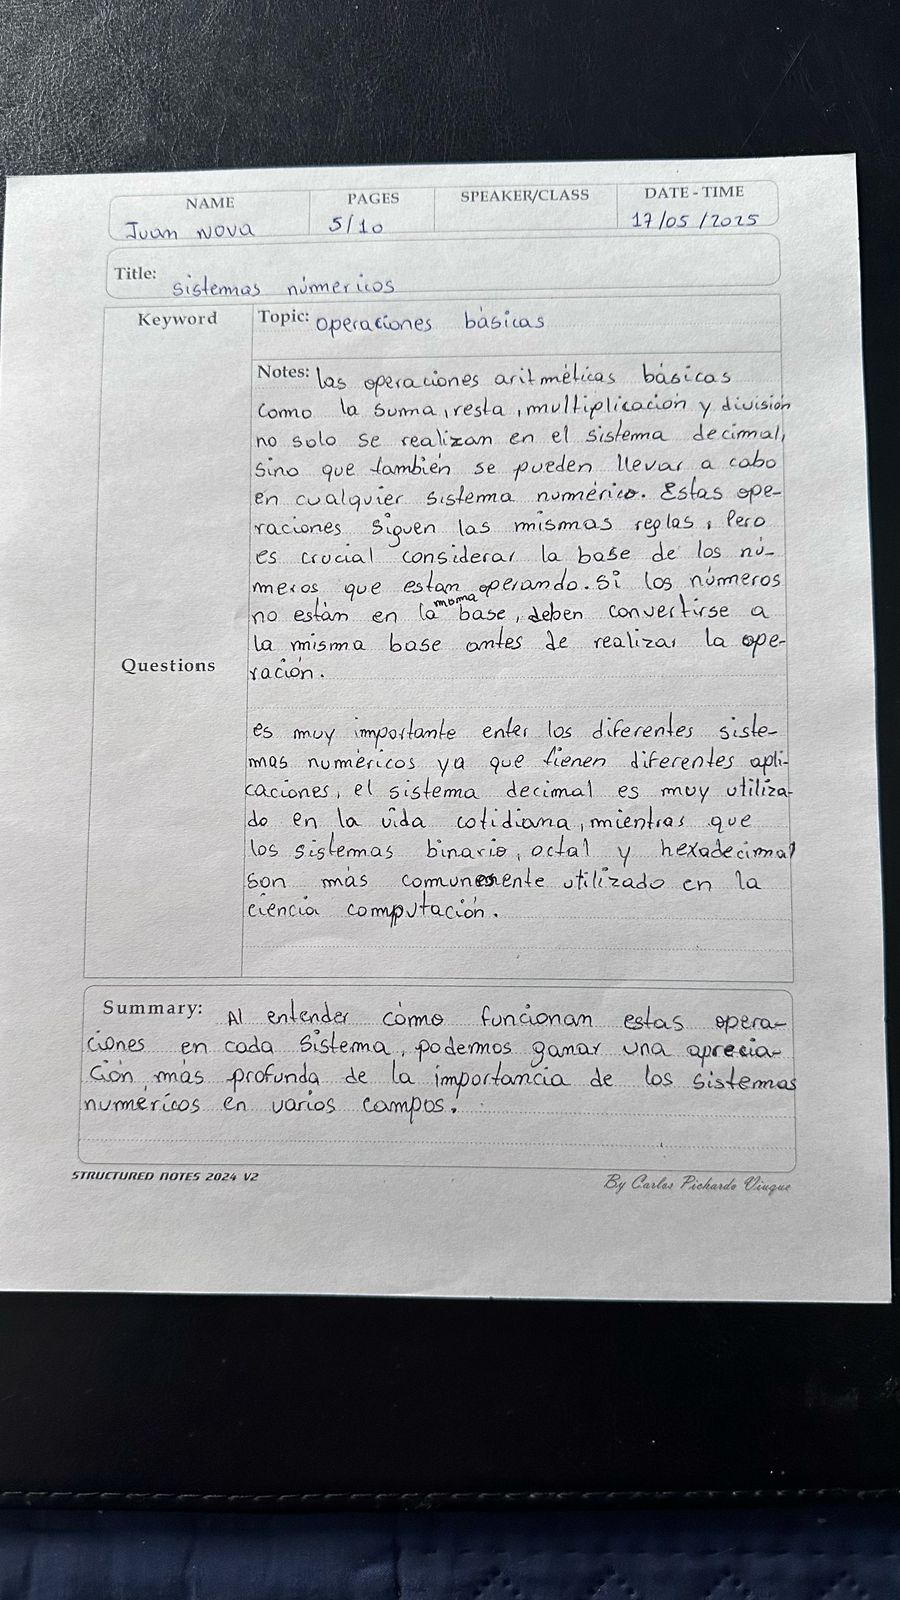 NAME PAGES SPEAKER/CLASS DATE - TIME
Juan Nova 5/10 17/05/2025
Title: sistemas númericos
Keyword Topic: operaciones básicas
Notes: las operaciones aritméticas básicas
como la suma, resta, multiplicación y división
no solo se realizan en el sistema decimal,
sino que también se pueden llevar a cabo
en cualquier sistema numérico. Estas ope-
raciones siguen las mismas reglas, Pero
es crucial considerar la base de los nú-
meros que estam operando. Si los números
no están en la misma base, deben convertirse a
la misma base antes de realizar la ope-
Questions ración.
es muy importante enter los diferentes siste-
mas numéricos ya que tienen diferentes apli-
caciones, el sistema decimal es muy utiliza-
do en la vida cotidiana, mientras que
los sistemas binario, octal y hexadecimal
son más comunmente utilizado en la
ciencia computación.
Summary: Al entender cómo funcionan estas opera-
ciones en cada sistema, podemos ganar una aprecia-
ción más profunda de la importancia de los sistemas
numéricos en varios campos.
STRUCTURED NOTES 2024 V2 By Carlos Pichardo Viuque